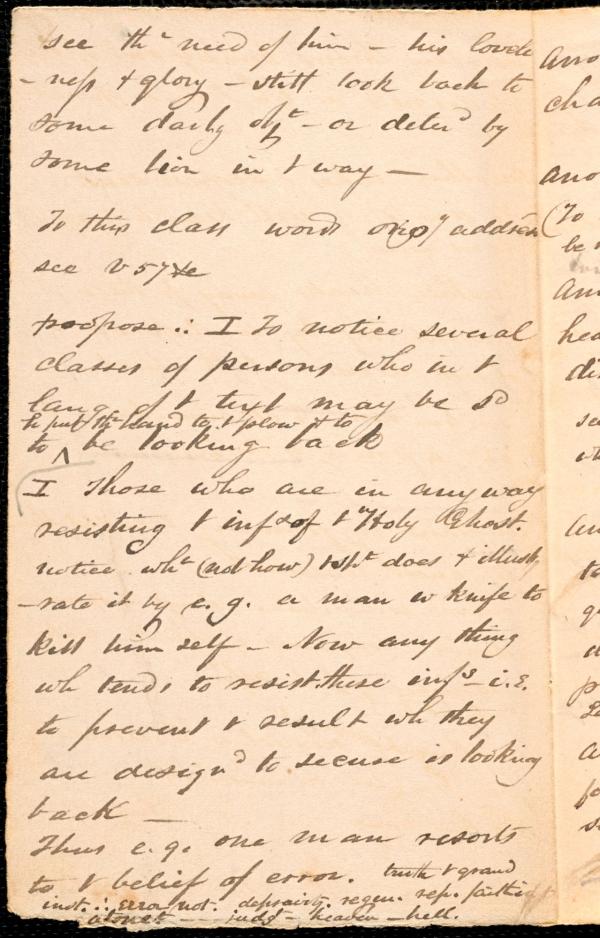 see th^e need of him – his loveli
-ness & glory – still look back to
some darling obj^t – or deter^d by
some lion in t way –
To this class words orig^y address^d
see v 57 &c
propose ∴ I To notice several
classes of persons who in t
lang. of t text may be s^d
to put th^r hand to t plow & to
to ^ be looking back
I Those who are in any way
resisting t inf^s of t Holy Ghost.
notice wh^t (not how) t Sp^t does & illust
-rate it by e.g. a man w knife to
kill him self – Now any thing
wh tends to resist these inf^s – i.e.
to prevent t result wh they
are design^d to secure is looking
back –
Thus e.g. one man resorts
to t belief of error. truth t grand
inst. ∴ error not. depravity. regen. rep. faith
atonet – judg^t – heaven – hell.
(To
be